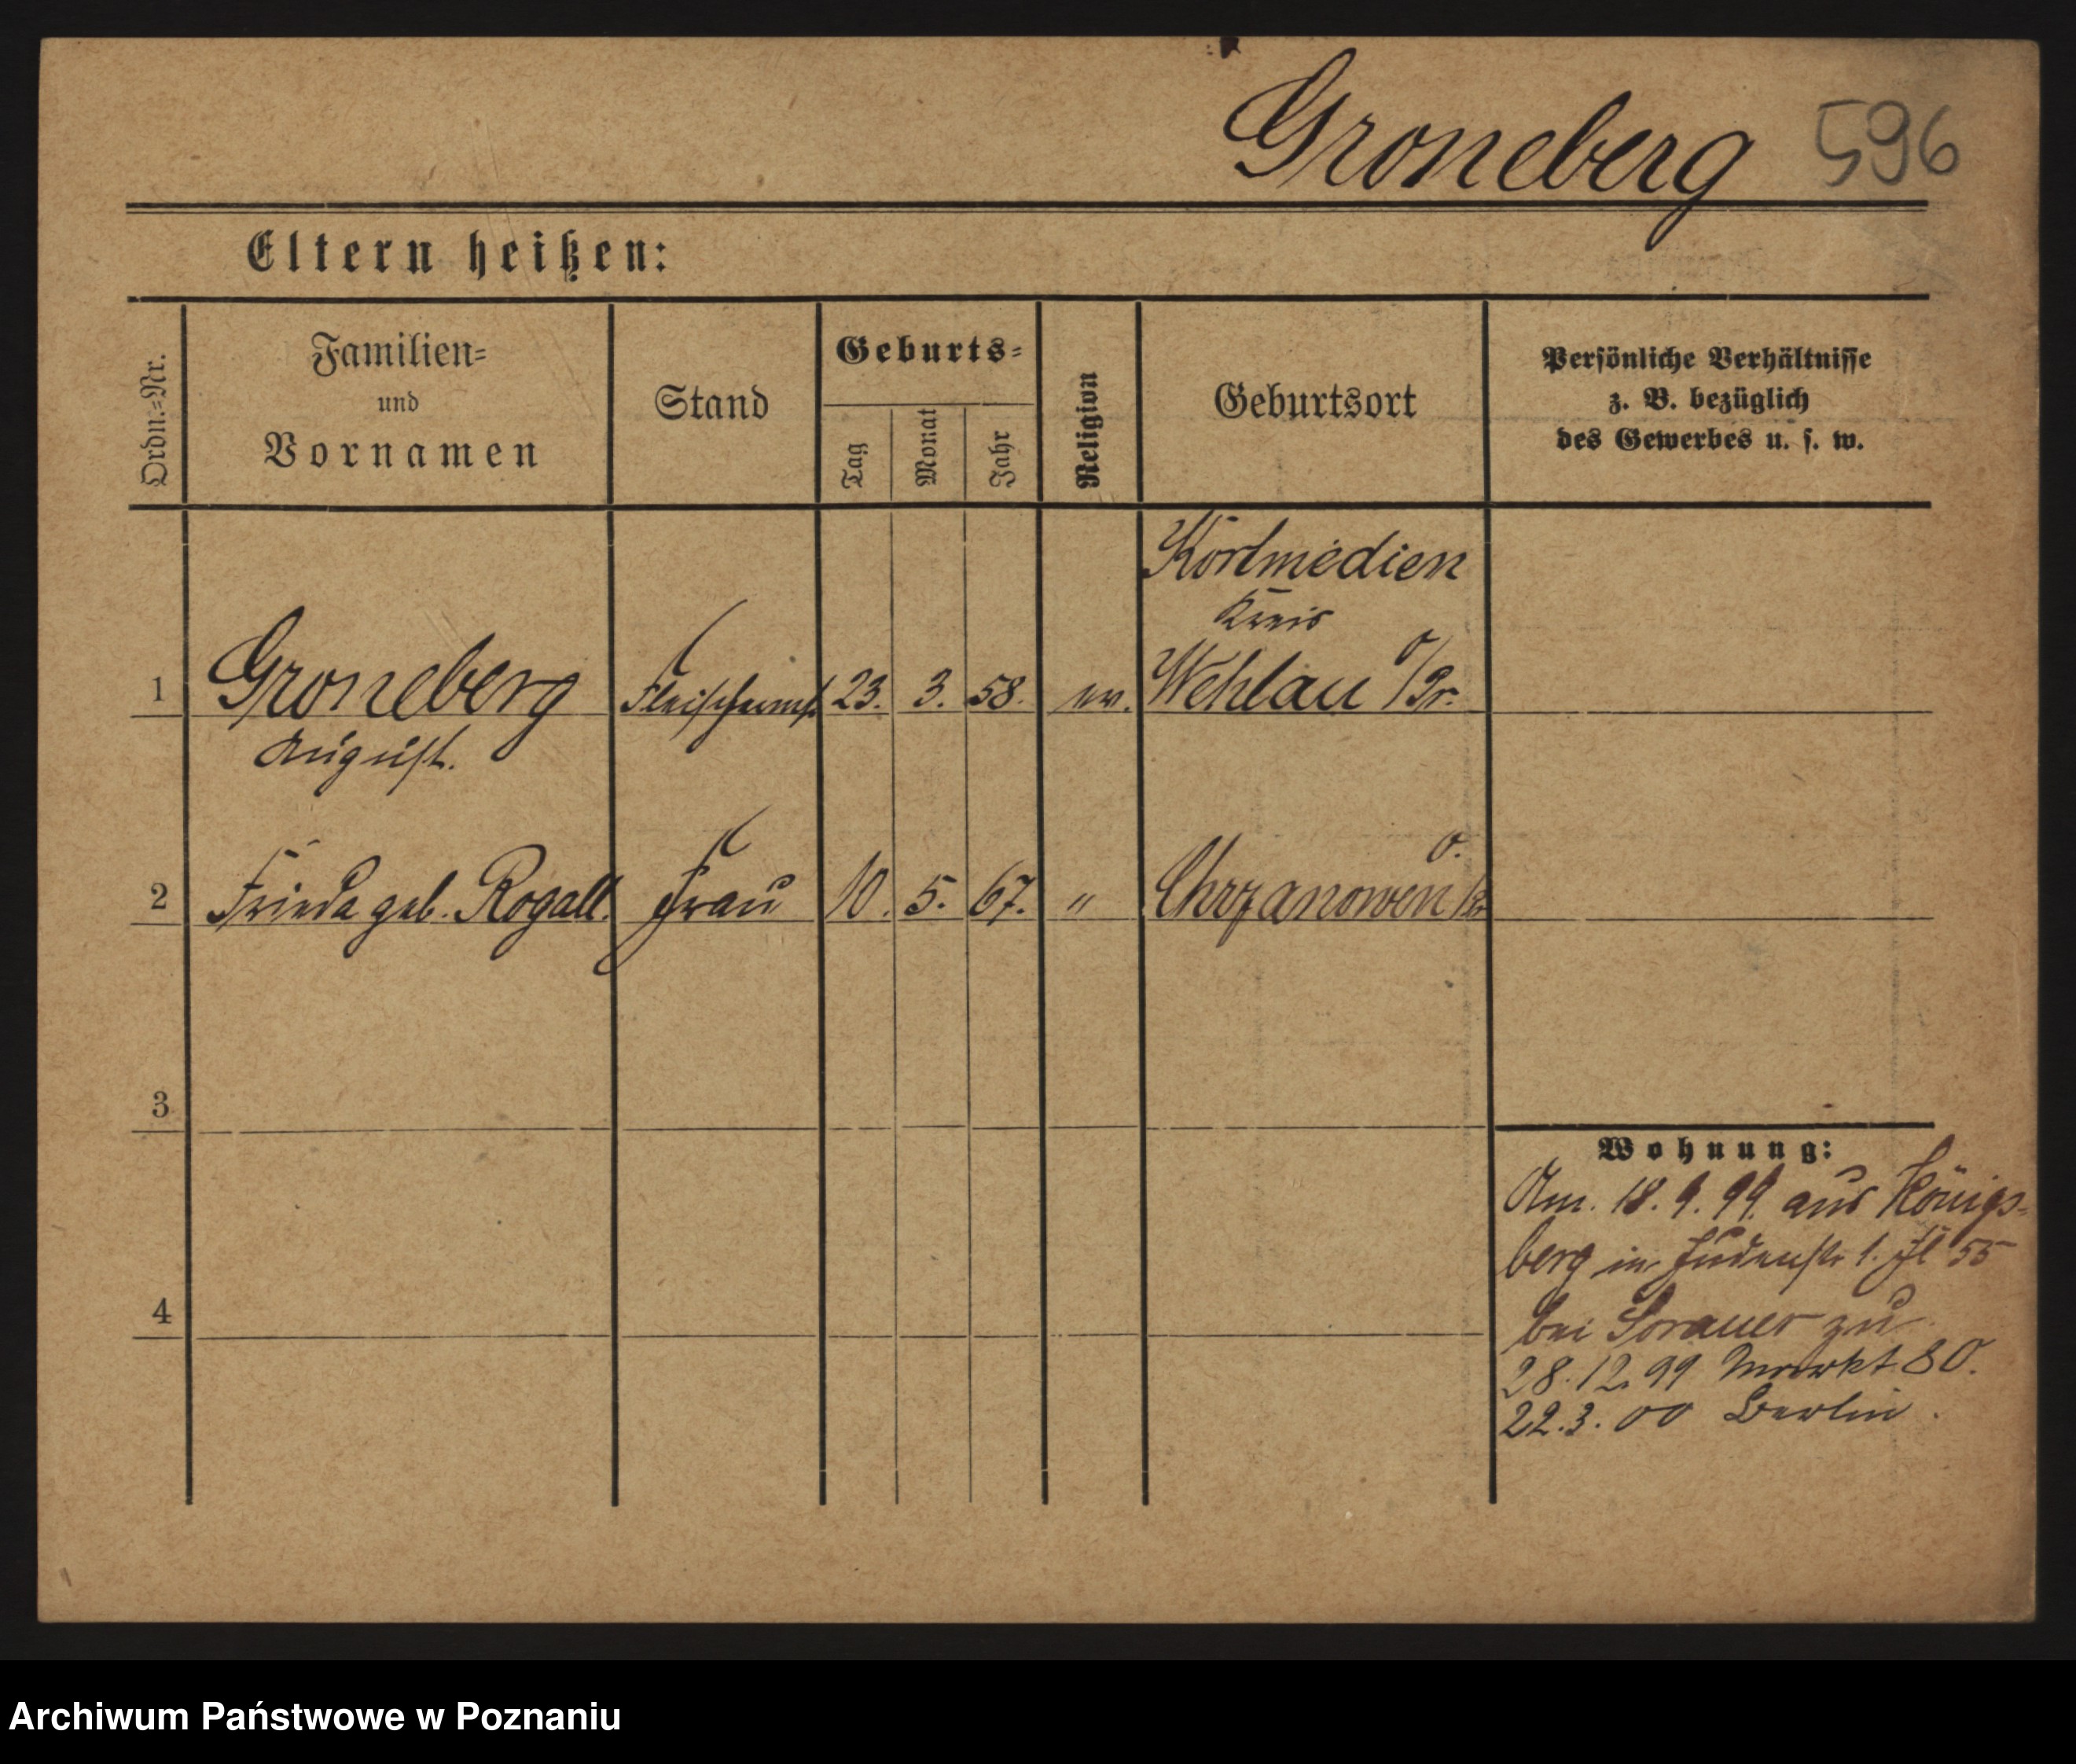 Groneberg 596
Eltern heißen:
Ordn.=Nr.
Familien=
und
Vornamen
Stand
Geburts=
Tag
Monat
Jahr
Religion
Geburtsort
Persönliche Verhältnisse
z. B. bezüglich
des Gewerbes u. s. w.
Körtmedien
Kreis
1 Groneberg 23. 3. 58. ev. Wehlau O/Pr.
August.
2 Frieda geb. Rogall. Frau 10. 5. 67. " Chrzanowen O./Pr.
3
4
Wohnung:
Am. 18. 9. 99. aus Königs-
berg in Judenstr 1. Jl 55
bei Sorauer zu
28.12.99 Markt 80.
22.3.00 Berlin.
Archiwum Państwowe w Poznaniu